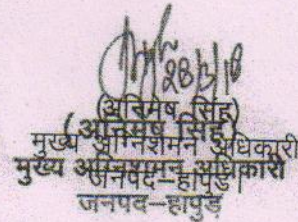 28/3/18
(अनिमेष सिंह)
(अनिमेष सिंह)
मुख्य अग्निशमन अधिकारी
मुख्य अग्निशमन अधिकारी
जनपद–हापुड़।
जनपद–हापुड़